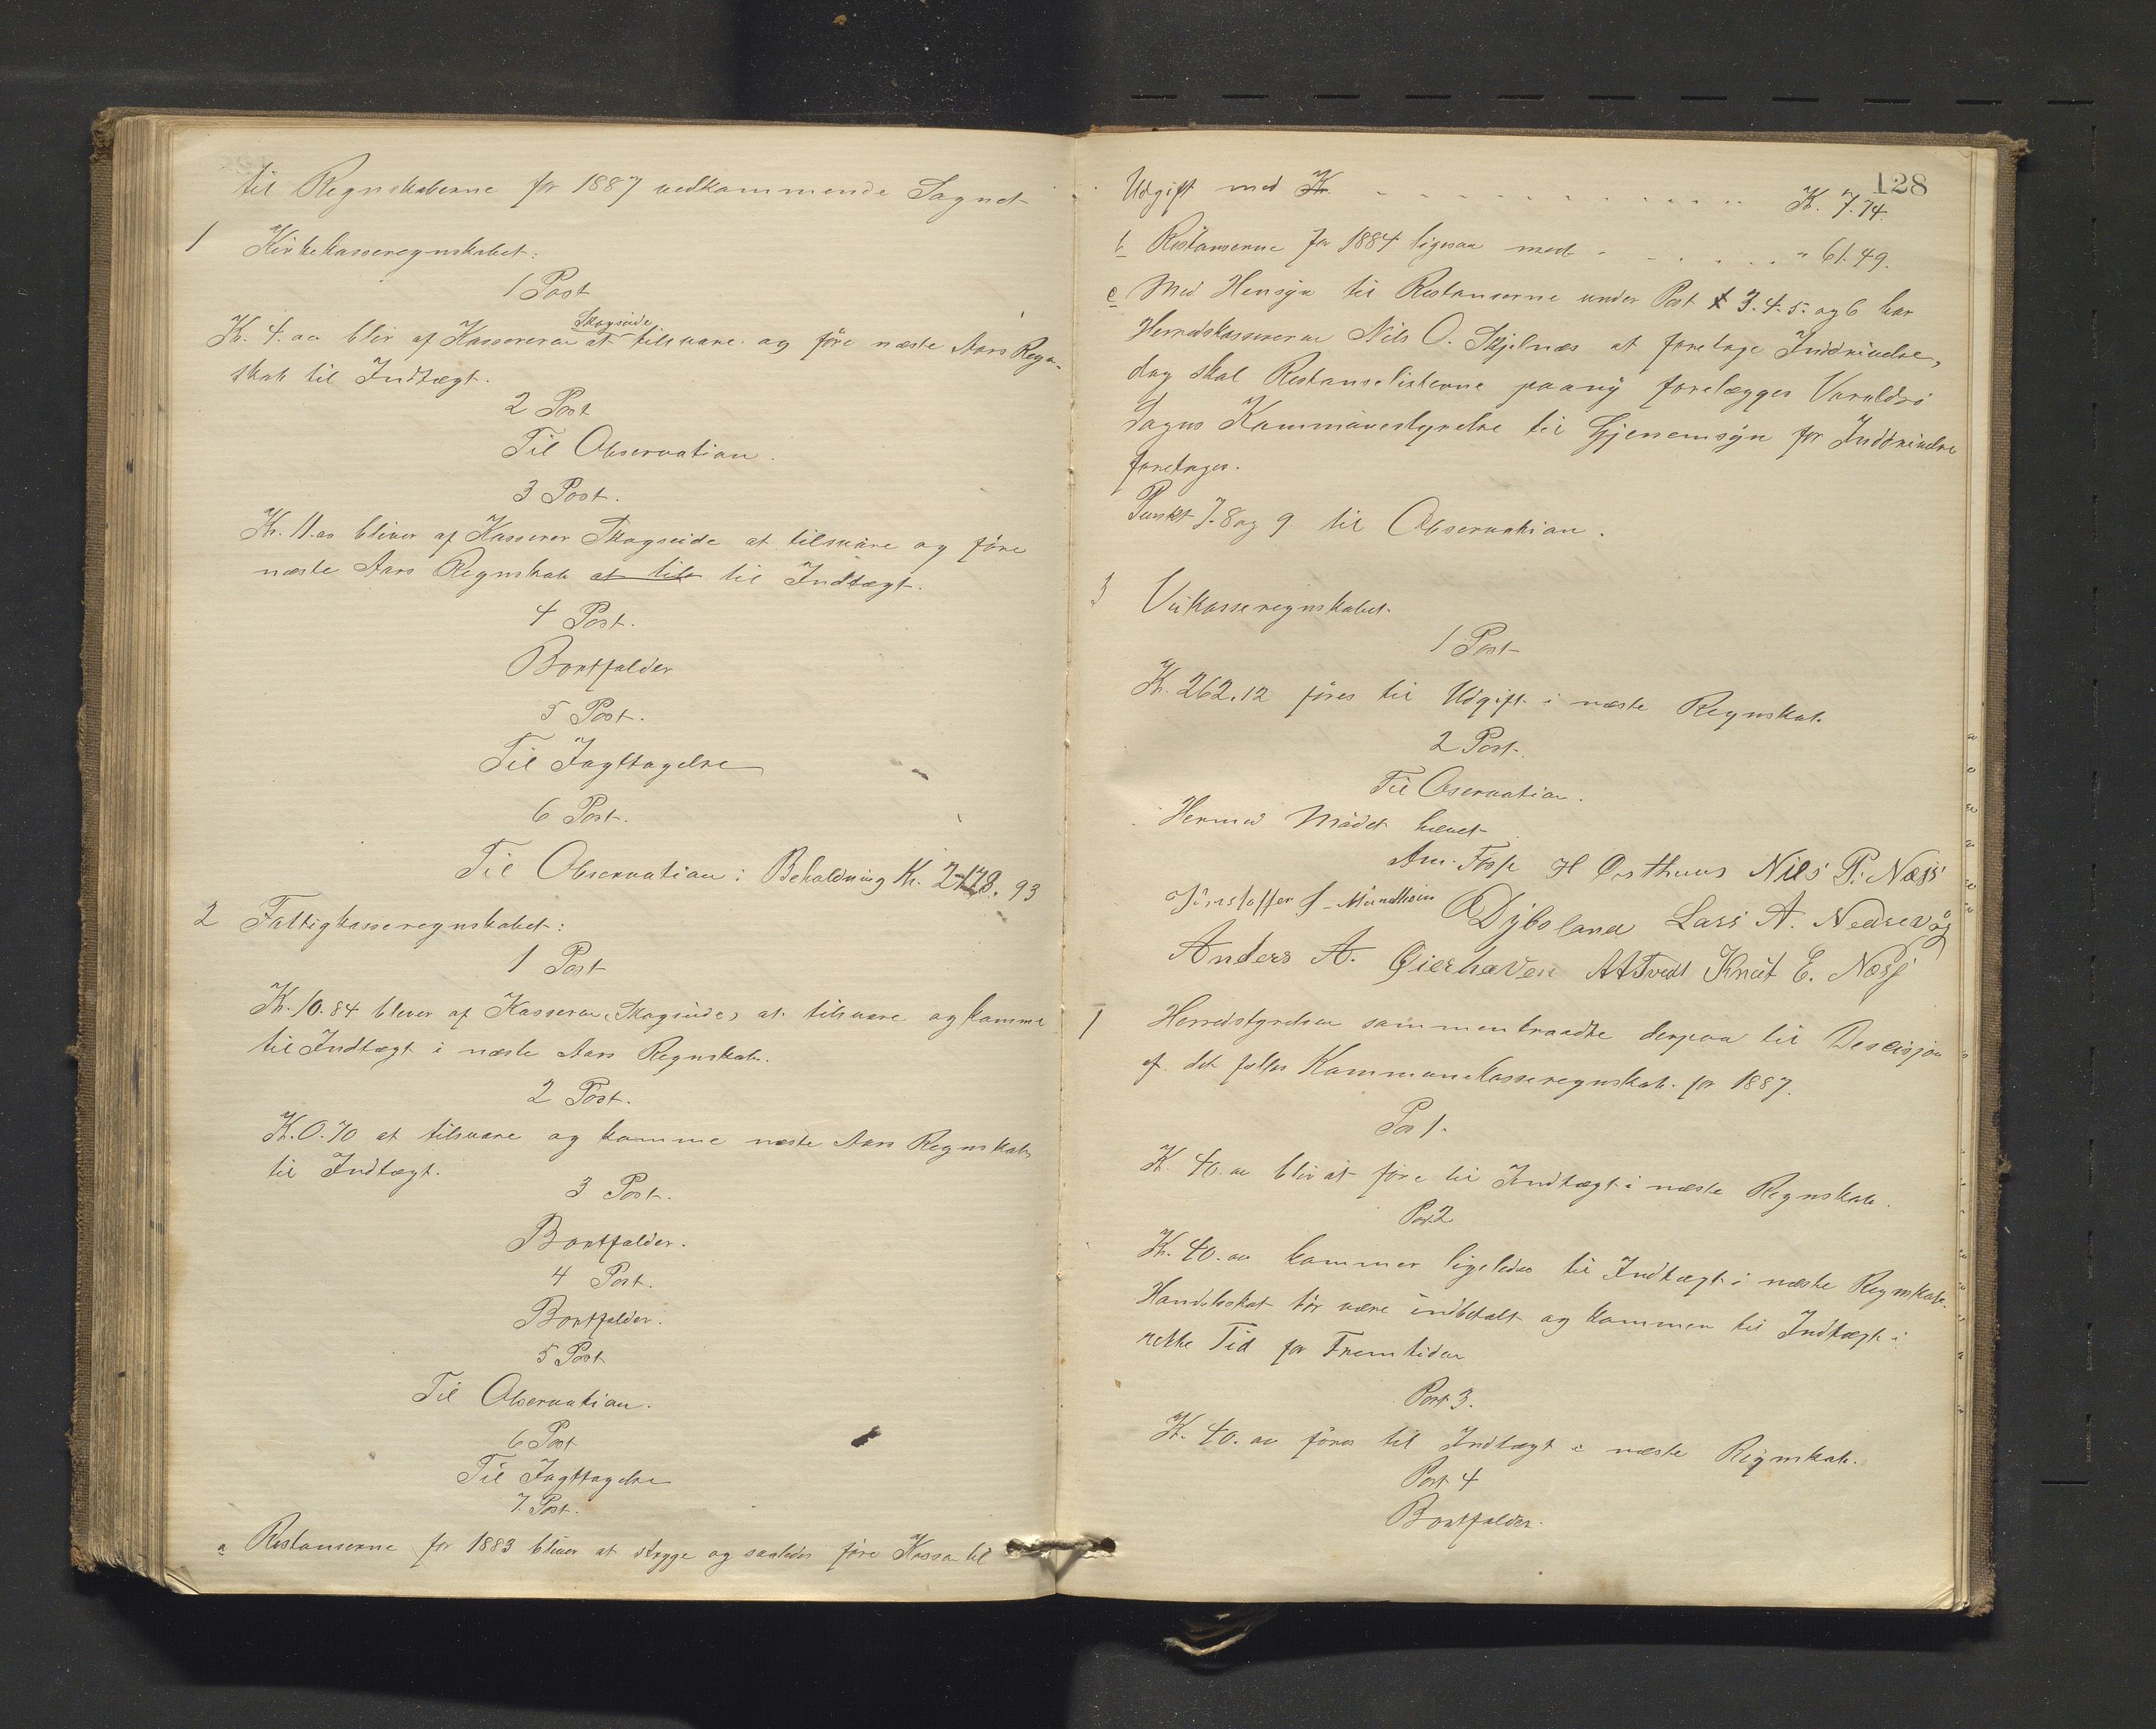 til Regnskaberne for 1887 vedkommende Sognet
1 Kirkekasseregnskabet:
1 Post
Kr. 4.00 bliv af Kassereren Skogseide at tilsvare og före næste Aars Regn-
skab til Indtægt.
2 Post
Til Observation.
3 Post.
Kr. 11.00 bliver af Kasserer Skogseide at tilsvare og före
næste Aars Regnskab at til til Indtægt.
4 Post.
Bortfalder
5 Post.
Til Jagttagelse
6 Post.
Til Observation: Beholdning Kr. 93
2 Fattigkasseregnskabet:
1 Post
Kr. 10.84 blever af Kasseren, Skogseide, at tilsvare og komme
til Indtægt i næste Aars Regnskab.
2 Post.
Kr. 0.70 at tilsvare og komme næste Aars Regnskab
til Indtægt.
3 Post.
Bortfalder.
4 Post.
Bortfalder.
5 Post
Til Observation.
6 Post
Til Jagttagelse
7. Post.
a Restanserne for 1883 bliver at stryge og saaledes före Kassa til
128
Udgift med Kr. Kr. 7.74.
b Restanserne for 1884 ligesaa med " 61.49.
c Med Hensÿn til Restanserne under Post 3. 4. 5. og 6 har
Herredskassereren Nils O. Skjelnæs at foretage Inddrivelse,
dog skal Restanselisterne paanÿ forelægges Varaldsö
Sogns Kommunestyrelse til Gjenemsÿn för Inddrivelse
foretages.
Punkt 7. 8 og 9. til Observation.
3 Veikasseregnskabet.
1 Post
Kr. 262.12 föres til Udgift i næste Regnskab.
2 Post.
Til Oservation.
Hermed Mödet hævet
H Østhuus Nils P. Næss
Lars A. Nedrevåg
Anders A. Øierhaven A A Tvedt Knut E. Næss
1 Herredstyrelsen sammentraadte derpaa til Descisjon
af det felles Kommunekasseregnskab for 1887.
Pos 1.
Kr. 40.00 bliv at före til Indtægt i næste Regnskab.
Pos. 2
Kr. 40.00 kommer ligeledes til Indtægt i næste Regnskab.
Handelsskat bör være indbetalt og kommen til Indtægt i
rette Tid for Fremtiden
Post 3.
Kr. 40.00 föres til Indtægt i næste Regnskab.
Post 4
Bortfalder.